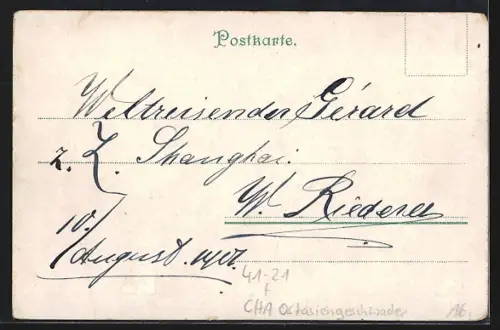 Postkarte.
Weltreisender Gérard
z. Z. Shanghai.
W. Riederer
10.
August. 1907.
41-21
CHA Ostasiengeschwader
16.